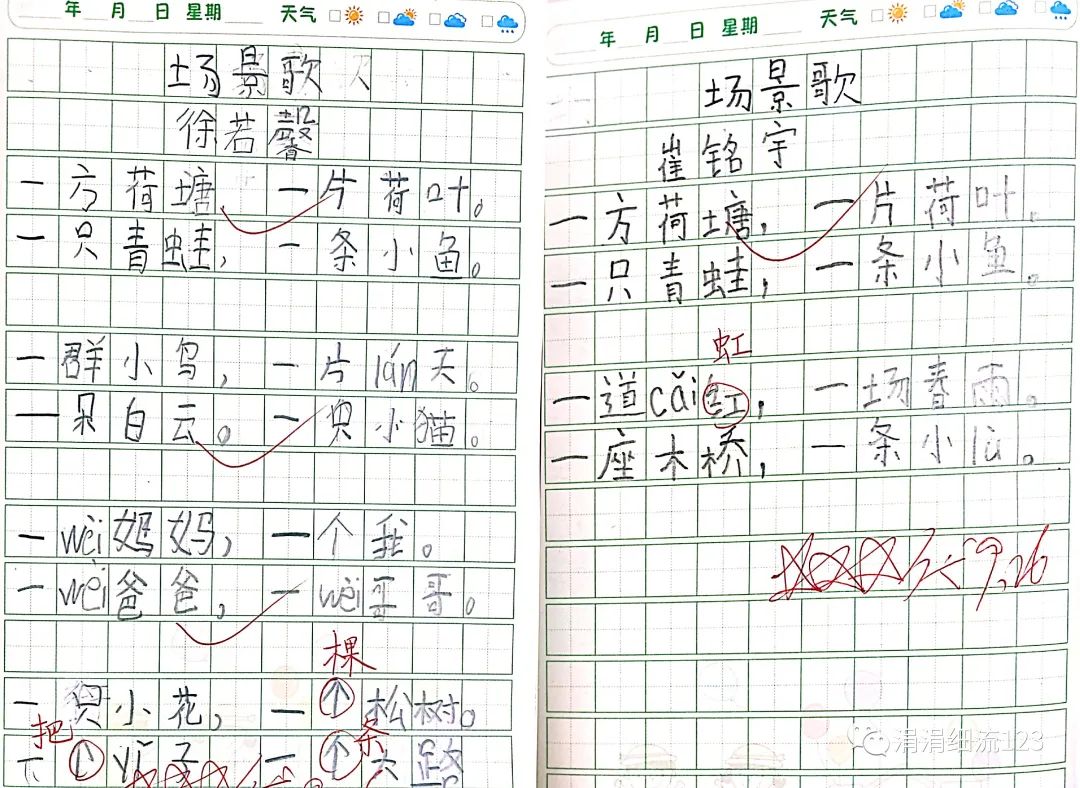 年 月 日 星期 天气
场景歌
徐若馨
一方荷塘,一片荷叶。
一只青蛙,一条小鱼。
一群小鸟,一片lán天。
一朵白云。一只小猫。
一wèi妈妈,一个我。
一wèi爸爸,一wèi哥哥。
棵
一只小花,一个松树。
把 条
一个yǐ子 一个大路
年 月 日 星期 天气
场景歌
崔铭宇
一方荷塘,一片荷叶。
一只青蛙,一条小鱼。
虹
一道cǎi红,一场春雨。
一座木桥,一条小lù。
9.26
涓涓细流123